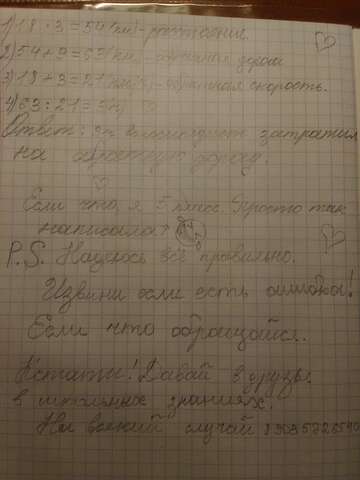 1) 18 · 3 = 54 (км) - расстояние
2) 54 + 9 = 63 (км) - обратная дорога
3) 18 + 3 = 21 (км/ч) - обратная скорость.
4) 63 : 21 = 3
Ответ: 3ч велосипедист затратил
на обратную дорогу.
Если что, я 5 класс. Просто так
написала!
P.S. Надеюсь всё правильно.
Извини если есть ошибки!
Если что обращайся.
Кстати! Давай в друзья
в школьных знаниях.
На всякий случай